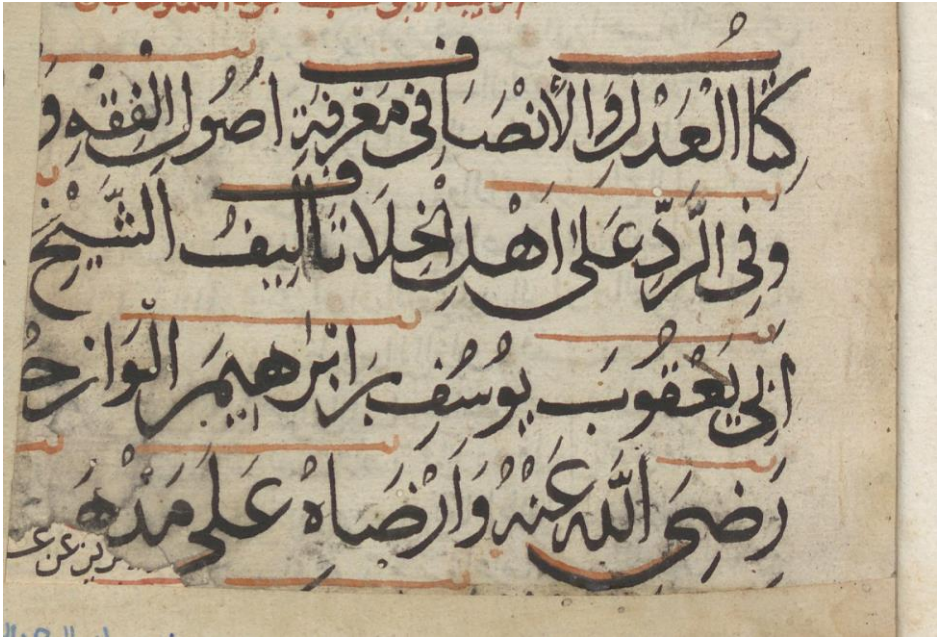 كِتَابُ الْعَدْلِ وَالْأَنْصَافِ فِي مَعْرِفَةِ اصُولِ الْفِقْهِ وَ
وَفِي الرَّدِّ عَلَى اهْلِ الْخِلَافِ تَالِيفُ الشَّيْخِ
ابِي يَعْقُوبَ يُوسُفِ بْنِ ابْرَاهِيمَ الْوَارجـ
رَضِيَ اللَّه عَنْهُ وَارْضَاهُ عَلَى مَذْهَـ